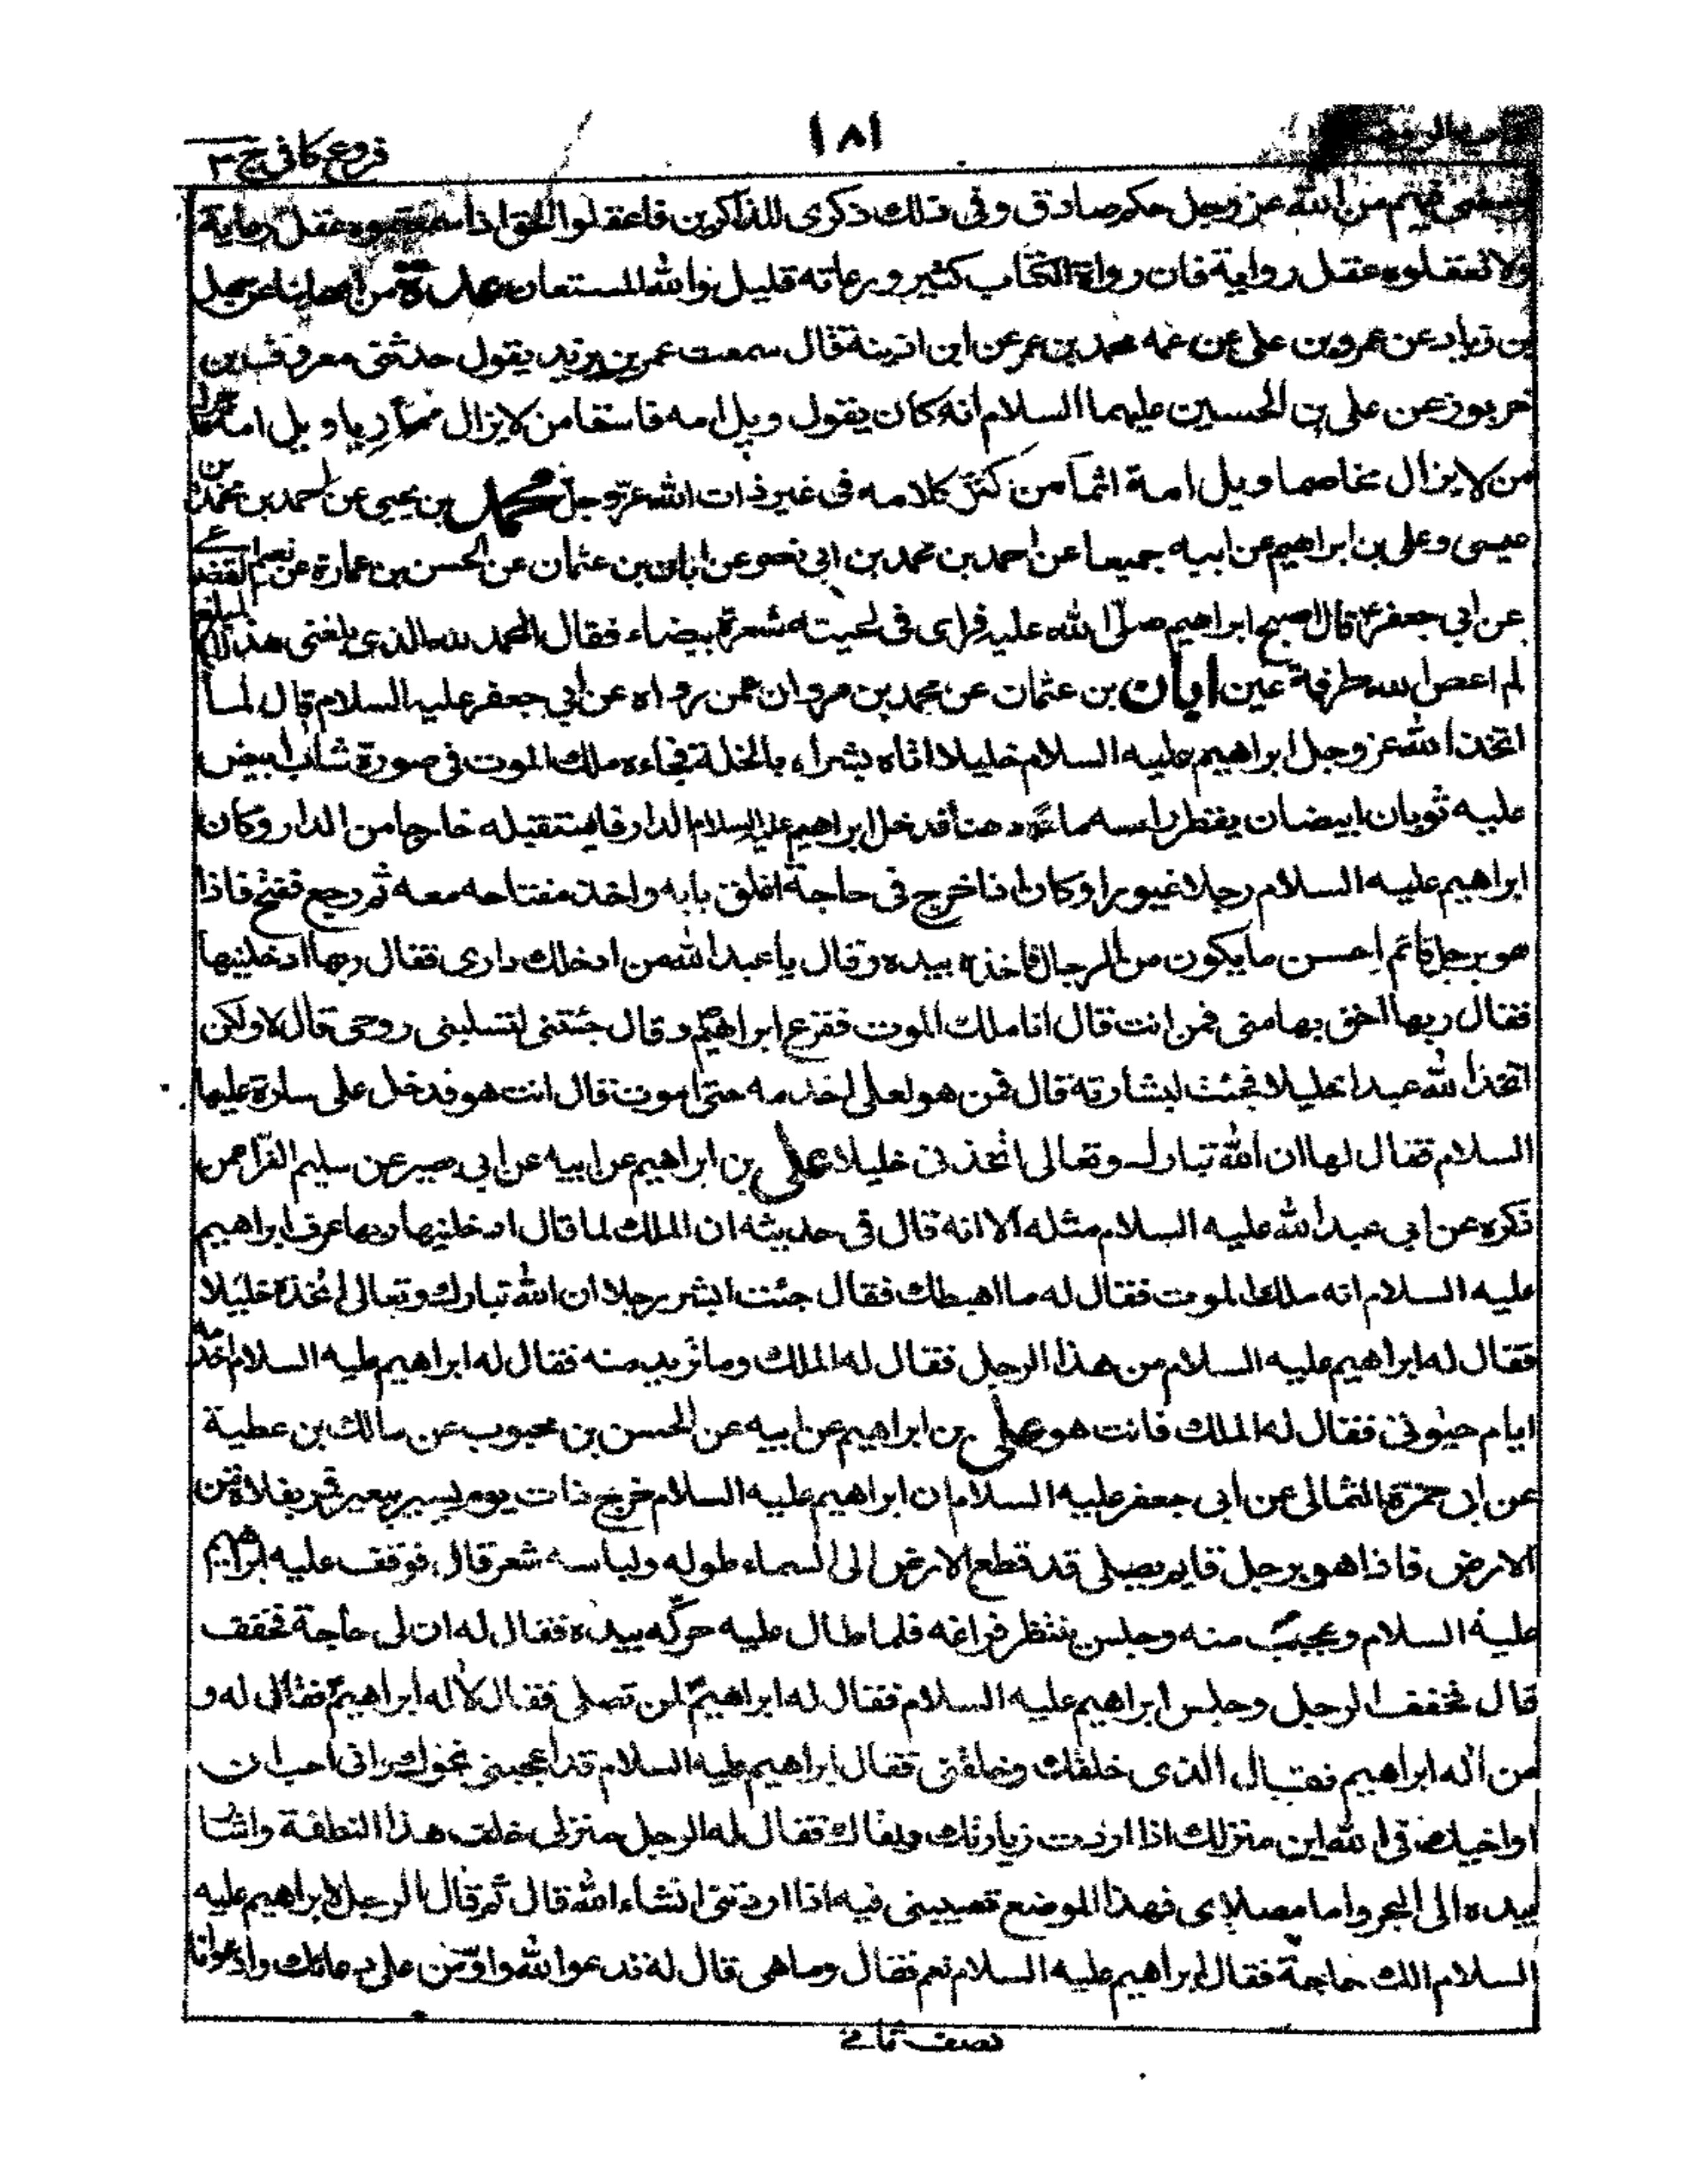 فروع کافی ج ۳
۱۸۱
فيهم من الله عز وجل حكم صادق وفى ذلك ذكرى للذاكرين فاعقلوا الحق اذا سمعتموه عقل رعاية
ولا تعقلوه عقل رواية فان رواة الكتاب كثير ورعاته قليل والله المستعان عدة من اصحابنا عن سهل
بن زياد عن عمرو بن على عن عمه محمد بن عمر عن ابن اذينة قال سمعت عمر بن يزيد يقول حدثنى معروف بن
خربوذ عن على بن الحسين عليهما السلام انه كان يقول ويل امه فاسقا من لا يزال مماريا ويل امه فاجرا
من لا يزال مخاصما ويل امه اثما من كثر كلامه فى غير ذات الله عز وجل محمد بن يحيى عن احمد بن محمد بن
عيسى وعلى بن ابراهيم عن ابيه جميعا عن احمد بن محمد بن ابى نصر عن ابان بن عثمان عن الحسن بن عمارة عن نعيم القضاعى
عن ابى جعفر ع قال اصبح ابراهيم صلى الله عليه فراى فى لحيته شعرة بيضاء فقال الحمد لله الذى بلغنى هذا المبلغ
لم اعص الله طرفة عين ابان بن عثمان عن محمد بن مروان عمن رواه عن ابى جعفر عليه السلام قال لما
اتخذ الله عز وجل ابراهيم عليه السلام خليلا اتاه بشراه بالخلة فجاءه ملك الموت فى صورة شاب ابيض
عليه ثوبان ابيضان يقطر راسه ماء ودهنا فدخل ابراهيم عليه السلام الدار فاستقبله خارجا من الدار وكان
ابراهيم عليه السلام رجلا غيورا وكان اذا خرج فى حاجة اغلق بابه واخذ مفتاحه معه ثم رجع ففتح فاذا
هو برجل قائم احسن ما يكون من الرجال فاخذه بيده وقال يا عبد الله من ادخلك دارى فقال ربها ادخلنيها
فقال ربها احق بها منى فمن انت قال انا ملك الموت ففزع ابراهيم ع وقال جئتنى لتسلبنى روحى قال لا ولكن
اتخذ الله عبدا خليلا فجئت لبشارته قال فمن هو لعلى اخدمه حتى اموت قال انت هو فدخل على سارة عليها
السلام فقال لها ان الله تبارك وتعالى اتخذنى خليلا على بن ابراهيم عن ابيه عن ابى عمير عن سليم الفرا عمن
ذكره عن ابى عبد الله عليه السلام مثله الا انه قال فى حديثه ان الملك لما قال ادخلنيها ربها عرف ابراهيم
عليه السلام انه ملك الموت فقال له ما اهبطك فقال جئت ابشر رجلا ان الله تبارك وتعالى اتخذه خليلا
فقال له ابراهيم عليه السلام من هذا الرجل فقال له الملك وما تريد منه فقال له ابراهيم عليه السلام اخدمه
ايام حيوتى فقال له الملك فانت هو على بن ابراهيم عن ابيه عن الحسن بن محبوب عن مالك بن عطية
عن ابى حمزة الثمالى عن ابى جعفر عليه السلام ان ابراهيم عليه السلام خرج ذات يوم يسير ببعير فمر بفلاة من
الارض فاذا هو برجل قايم يصلى قد قطع الارض الى السماء طوله ولباسه شعر قال فوقف عليه ابراهيم
عليه السلام وعجب منه وجلس ينتظر فراغه فلما طال عليه حركه بيده فقال له ان لى حاجة فخفف
قال فخفف الرجل وجلس ابراهيم عليه السلام فقال له ابراهيم ع لمن تصلى فقال لاله ابراهيم ع فقال له و
من اله ابراهيم فقال الذى خلقك وخلقنى فقال ابراهيم عليه السلام قد اعجبنى نحوك وانى احب ان
اواخيك فى الله اين منزلك اذا اردت زيارتك ولقاءك فقال له الرجل منزلى خلف هذا النطفة واشا
بيده الى البحر واما مصلاى فهذا الموضع تصيبنى فيه اذا اردتنى انشاء الله قال ثم قال الرجل لابراهيم عليه
السلام الك حاجة فقال ابراهيم عليه السلام نعم فقال وما هى قال له تدعوا الله واؤمن على دعائك وادعوا انا
نصف ثانے